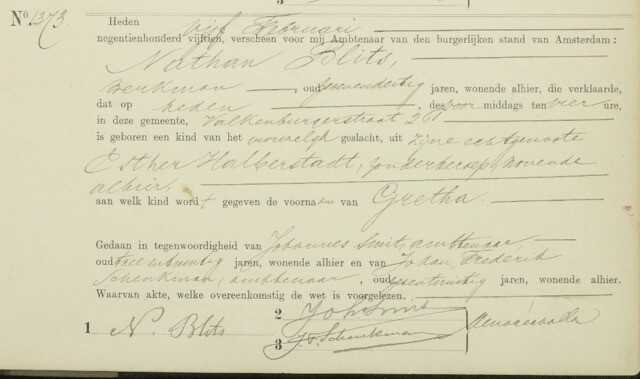 3
No. 1373
Heden vijf Februari
negentienhonderd vijftien, verscheen voor mij Ambtenaar van den burgerlijken stand van Amsterdam :
Nathan Blits,
Werkman, oud jaren, wonende alhier, die verklaarde,
dat op heden, des voor middags ten vier ure,
in deze gemeente, Valkenburgerstraat 201
is geboren een kind van het vrouwelijk geslacht, uit zijne echtgenoote
Esther Halberstadt, zonder beroep, wonende
alhier.
aan welk kind wordt gegeven de voornaam van Gretha.
Gedaan in tegenwoordigheid van Johannes Smit, ambtenaar,
oud jaren, wonende alhier en van Johan Frederik
Schenkman, ambtenaar, oud jaren, wonende alhier.
Waarvan akte, welke overeenkomstig de wet is voorgelezen.
1 N. Blits
2 Joh Smit
3 J. F. Schenkman